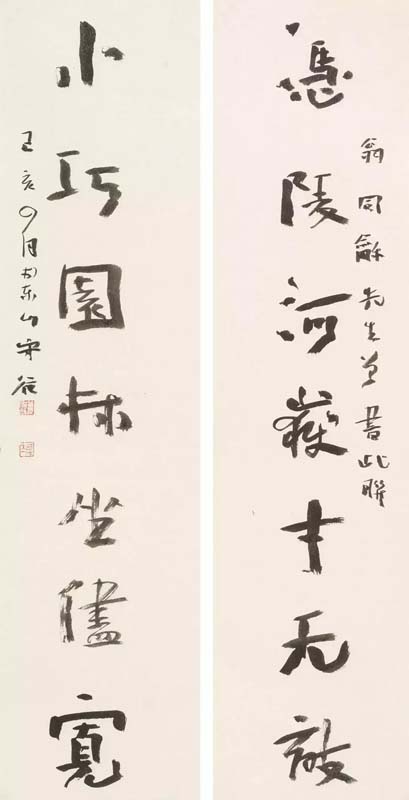 憑陵河嶽才无敵
翁同龢先生曾書此聯
小巧園林坐儘寬
己亥四月於東山